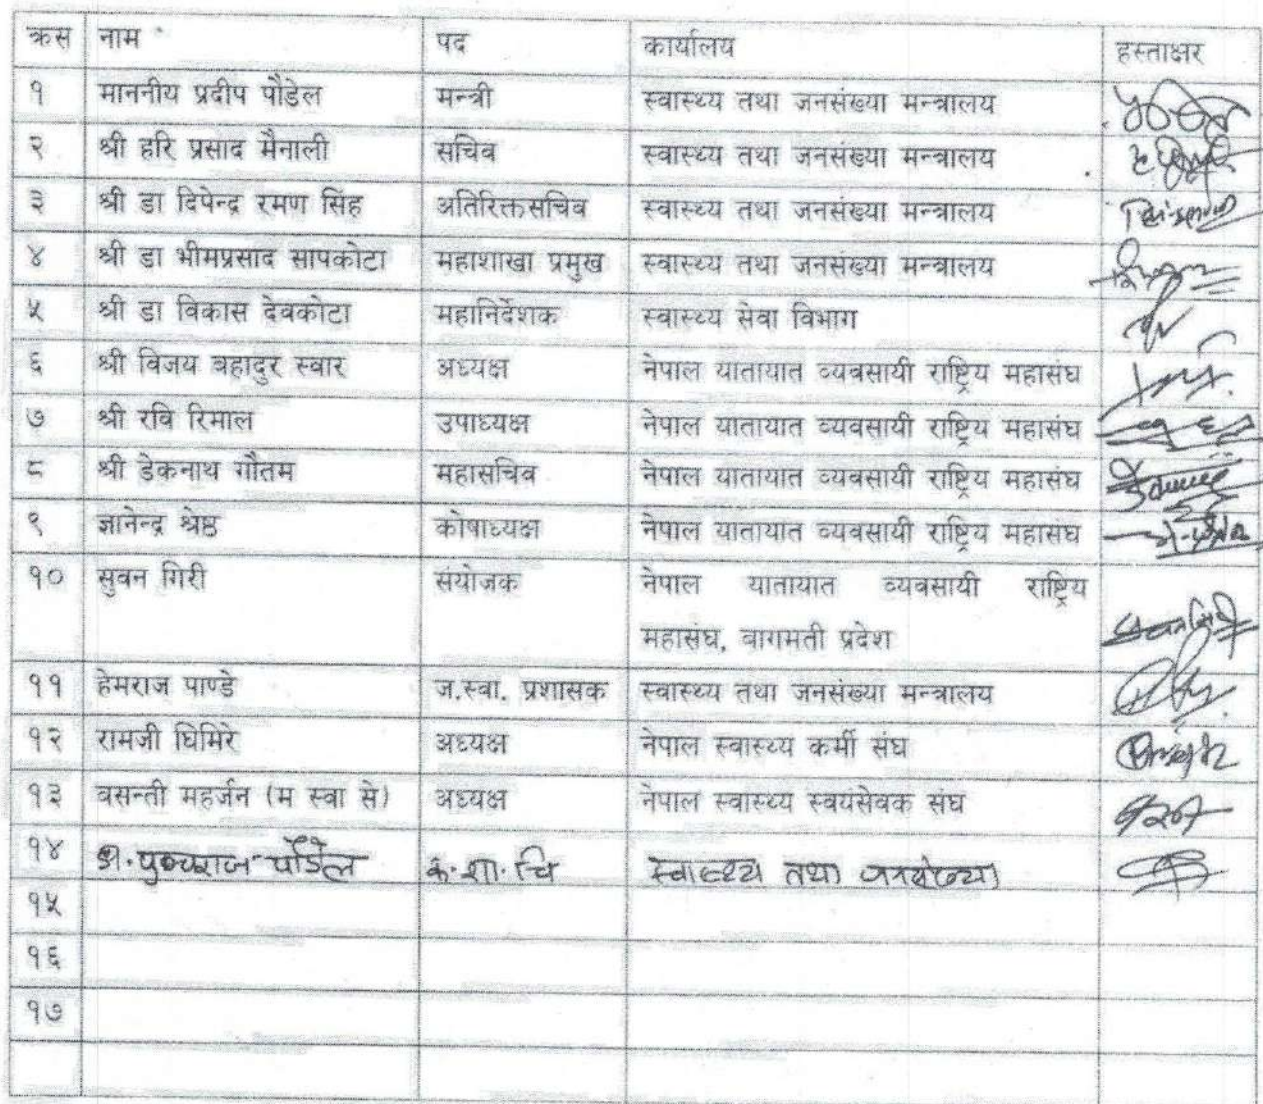 क्रस नाम पद कार्यालय हस्ताक्षर
१ माननीय प्रदीप पौडेल मन्त्री स्वास्थ्य तथा जनसंख्या मन्त्रालय
२ श्री हरि प्रसाद मैनाली सचिव स्वास्थ्य तथा जनसंख्या मन्त्रालय
३ श्री डा दिपेन्द्र रमण सिंह अतिरिक्तसचिव स्वास्थ्य तथा जनसंख्या मन्त्रालय
४ श्री डा भीमप्रसाद सापकोटा महाशाखा प्रमुख स्वास्थ्य तथा जनसंख्या मन्त्रालय
५ श्री डा विकास देवकोटा महानिर्देशक स्वास्थ्य सेवा विभाग
६ श्री विजय बहादुर स्वार अध्यक्ष नेपाल यातायात व्यवसायी राष्ट्रिय महासंघ
७ श्री रवि रिमाल उपाध्यक्ष नेपाल यातायात व्यवसायी राष्ट्रिय महासंघ
८ श्री डेकनाथ गौतम महासचिव नेपाल यातायात व्यवसायी राष्ट्रिय महासंघ
९ ज्ञानेन्द्र श्रेष्ठ कोषाध्यक्ष नेपाल यातायात व्यवसायी राष्ट्रिय महासंघ
१० सुवन गिरी संयोजक नेपाल यातायात व्यवसायी राष्ट्रिय
महासंघ, वागमती प्रदेश
११ हेमराज पाण्डे ज.स्वा. प्रशासक स्वास्थ्य तथा जनसंख्या मन्त्रालय
१२ रामजी घिमिरे अध्यक्ष नेपाल स्वास्थ्य कर्मी संघ
१३ वसन्ती महर्जन (म स्वा से) अध्यक्ष नेपाल स्वास्थ्य स्वयंसेवक संघ
१४ पौडेल स्वास्थ्य तथा जनसंख्या
१५
१६
१७